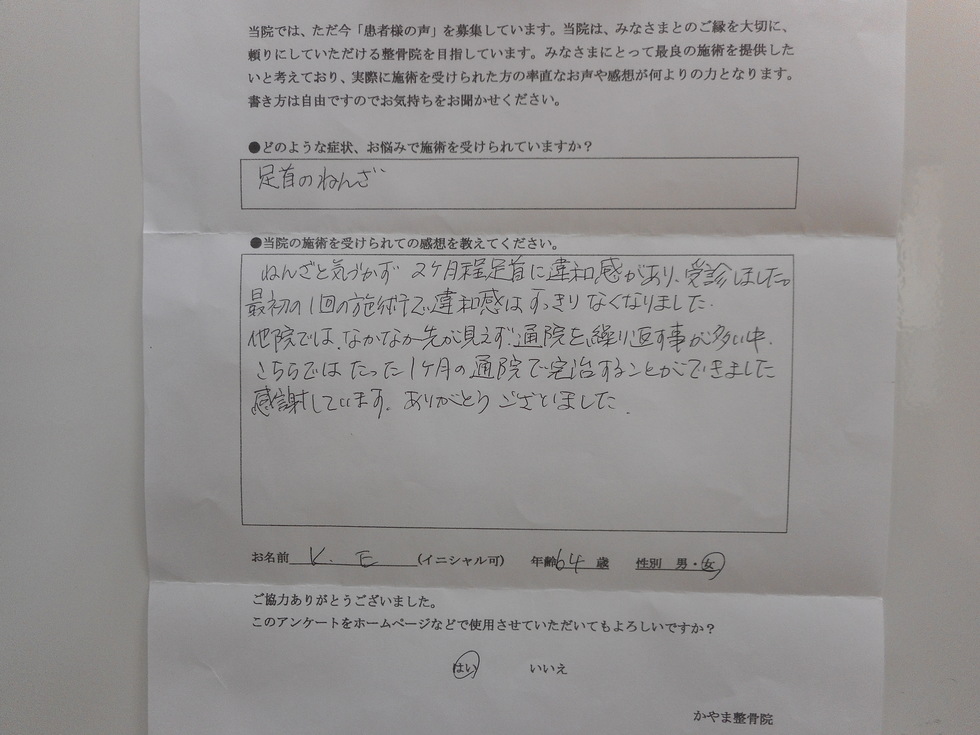 当院では、ただ今「患者様の声」を募集しています。当院は、みなさまとのご縁を大切に、
頼りにしていただける整骨院を目指しています。みなさまにとって最良の施術を提供した
いと考えており、実際に施術を受けられた方の率直なお声や感想が何よりの力となります。
書き方は自由ですのでお気持ちをお聞かせください。
●どのような症状、お悩みで施術を受けられていますか？
足首のねんざ
●当院の施術を受けられての感想を教えてください。
ねんざと気づかず 2ケ月程足首に違和感があり、受診しました。
最初の1回の施術で、違和感はすっきりなくなりました.
他院では、なかなか先が見えず、通院を繰り返す事が多い中、
こちらではたった1ケ月の通院で完治することができました
感謝しています。ありがとうございました.
お名前 K. E (イニシャル可) 年齢 64 歳 性別 男・女
ご協力ありがとうございました。
このアンケートをホームページなどで使用させていただいてもよろしいですか？
はい いいえ
かやま整骨院